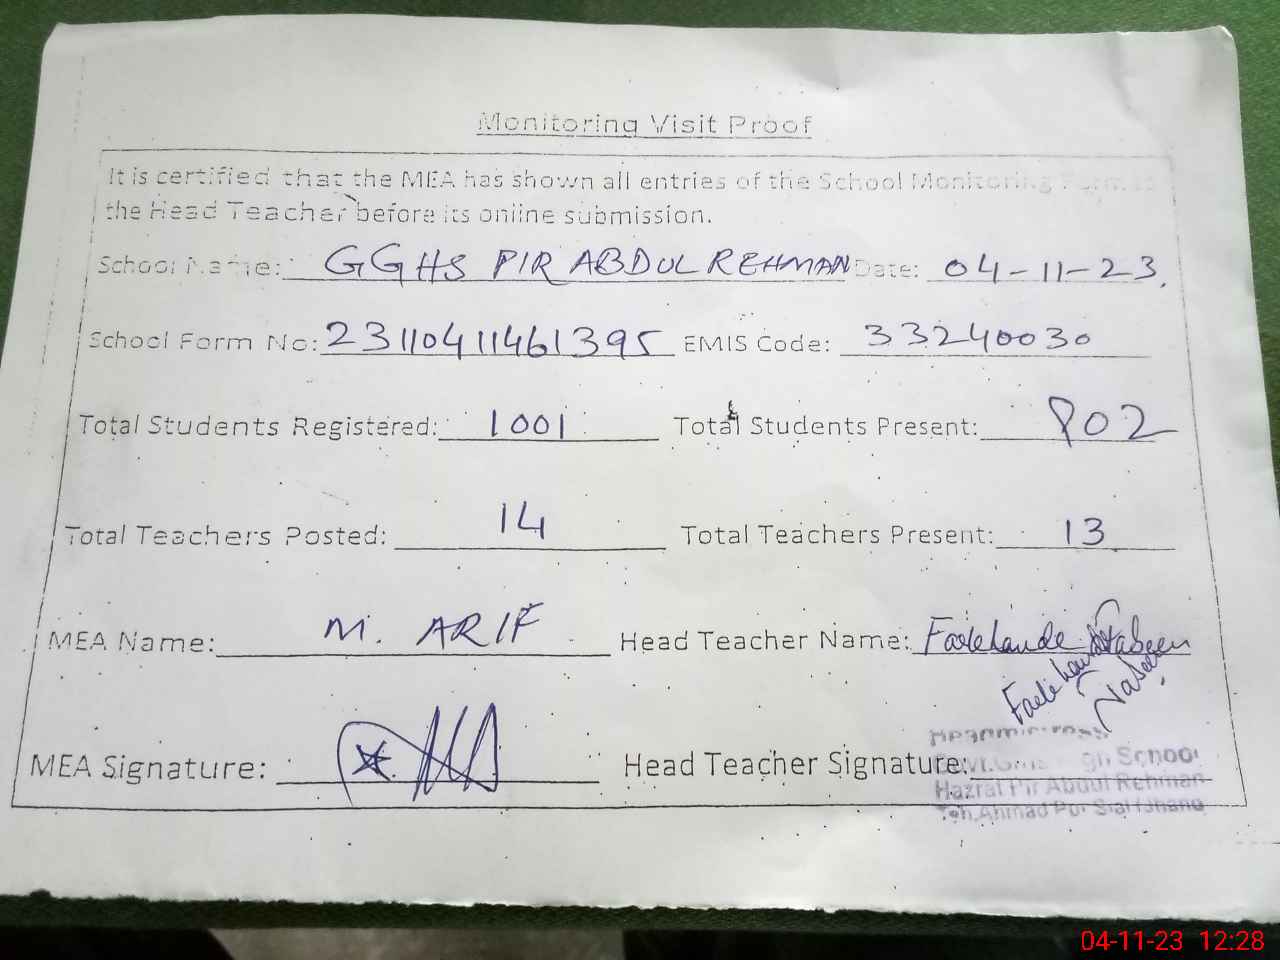 Monitoring Visit Proof
It is certified that the MEA has shown all entries of the School Monitoring Form to
the Head Teacher before its online submission.
School Name: GGHS PIR ABDUL REHMAN Date: 04-11-23
School Form No: 23110411461395 EMIS Code: 33240030
Total Students Registered: 1001 Total Students Present: 902
Total Teachers Posted: 14 Total Teachers Present: 13
MEA Name: M. ARIF Head Teacher Name:
MEA Signature: Head Teacher Signature:
Headmistress
Govt. Girls High School
Hazrat Pir Abdul Rehman
Teh, Ahmad Pur Sial (Jhang
04-11-23 12:28